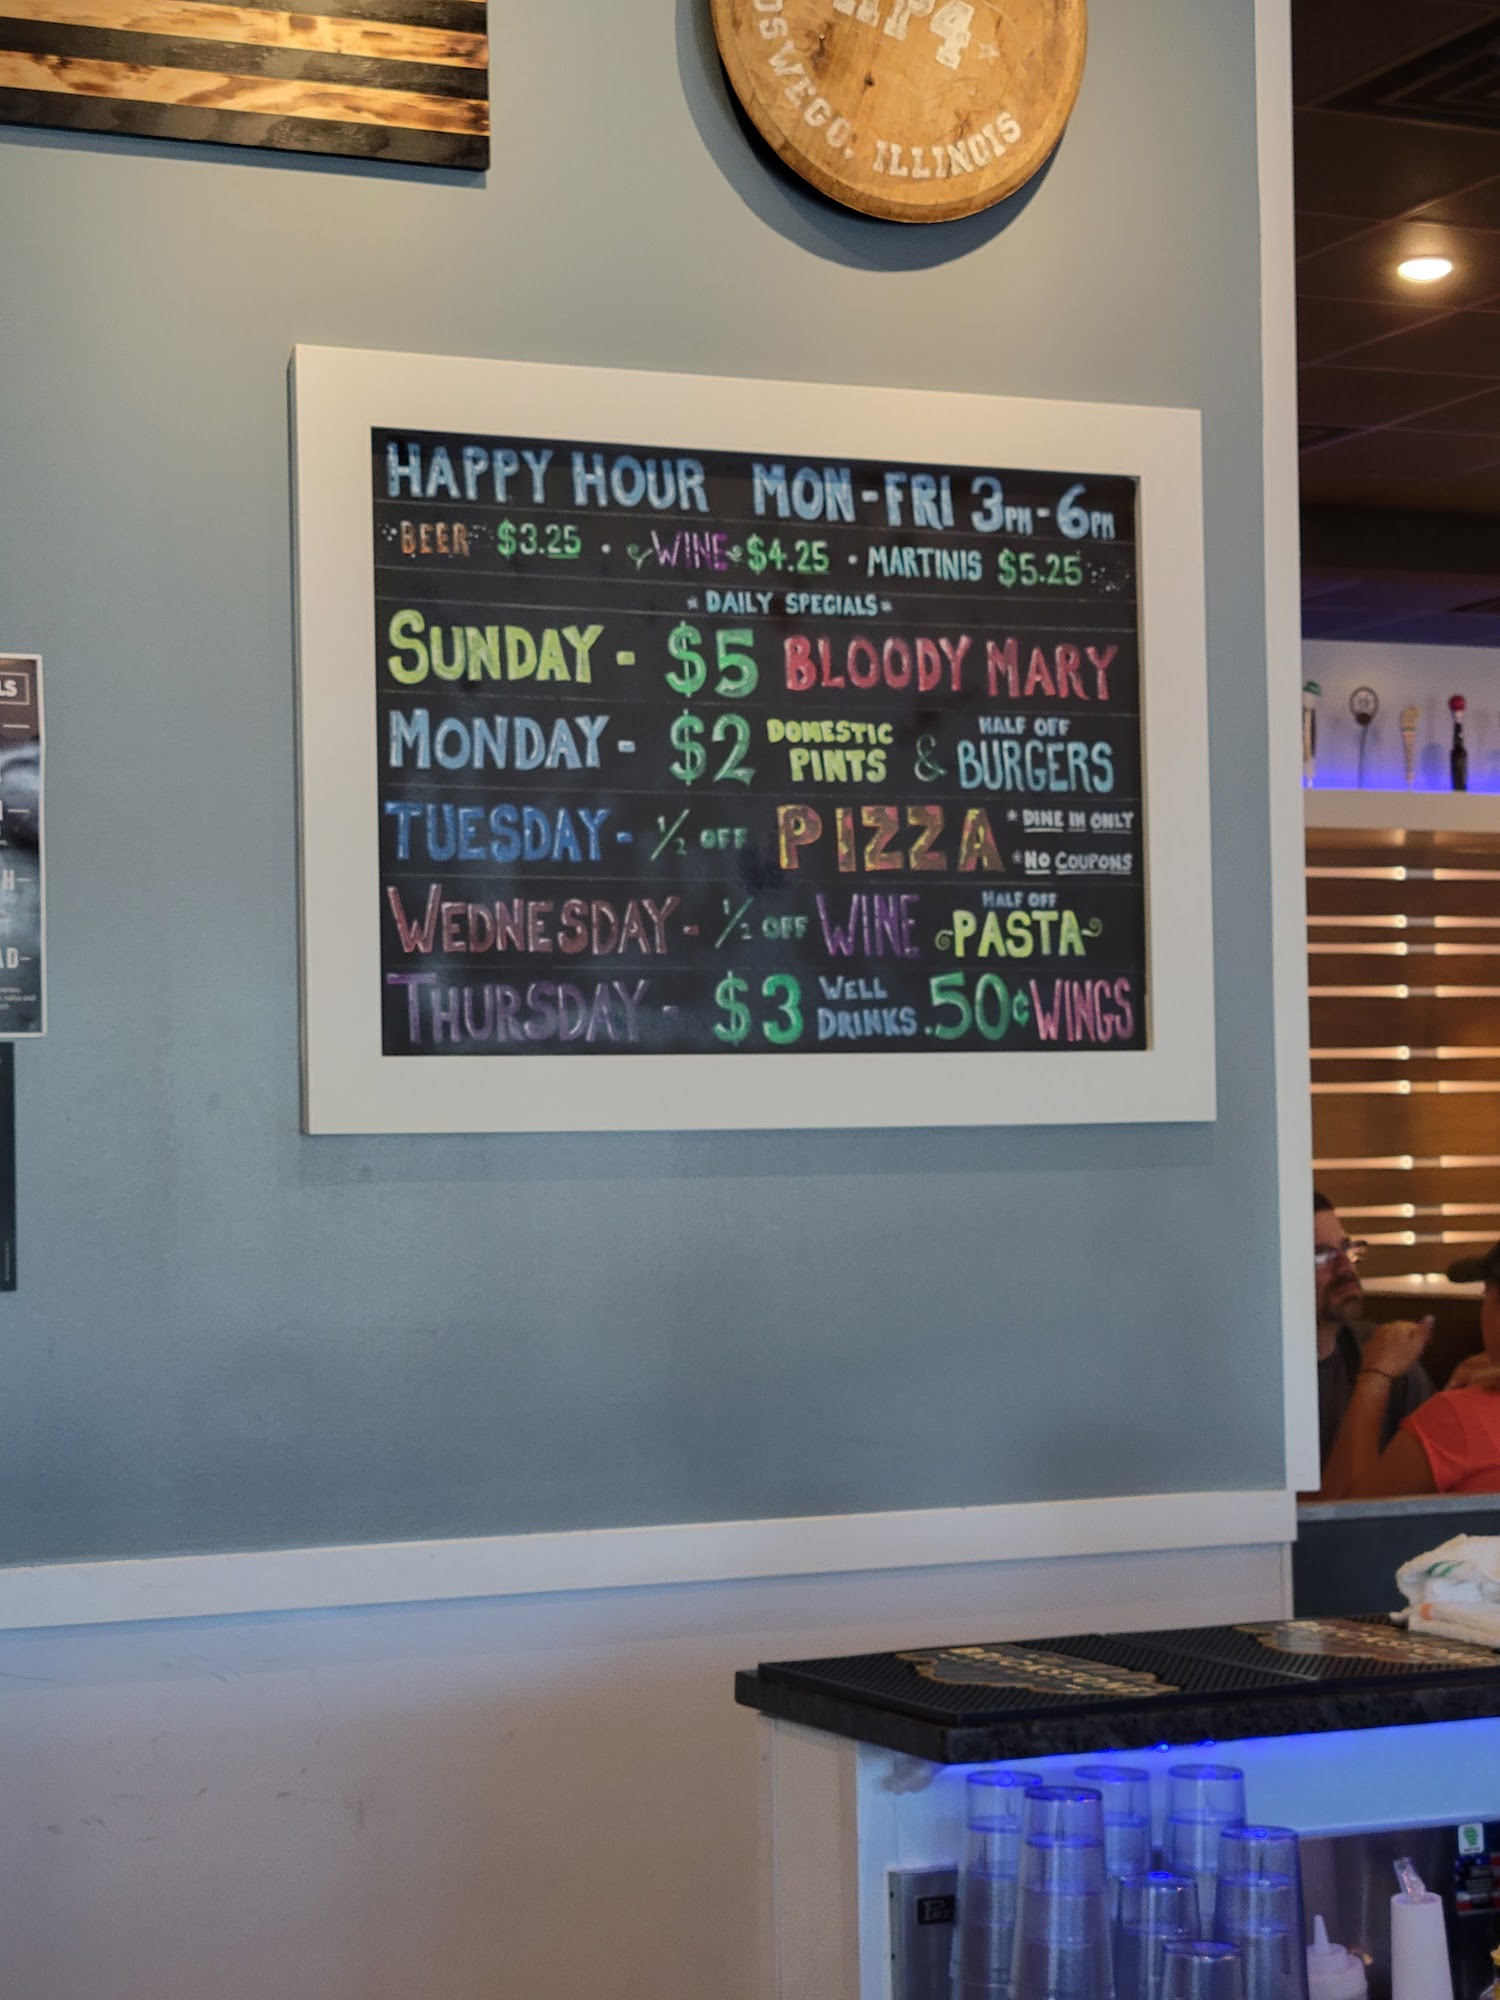 OSWEGO, ILLINOIS
HAPPY HOUR MON-FRI 3PM-6PM
BEER $3.25 · WINE $4.25 · MARTINIS $5.25
*DAILY SPECIALS*
SUNDAY - $5 BLOODY MARY
MONDAY - $2 DOMESTIC PINTS & HALF OFF BURGERS
TUESDAY - 1/2 OFF PIZZA *DINE IN ONLY
*NO COUPONS
WEDNESDAY - 1/2 OFF WINE HALF OFF PASTA
THURSDAY - $3 WELL DRINKS .50¢ WINGS